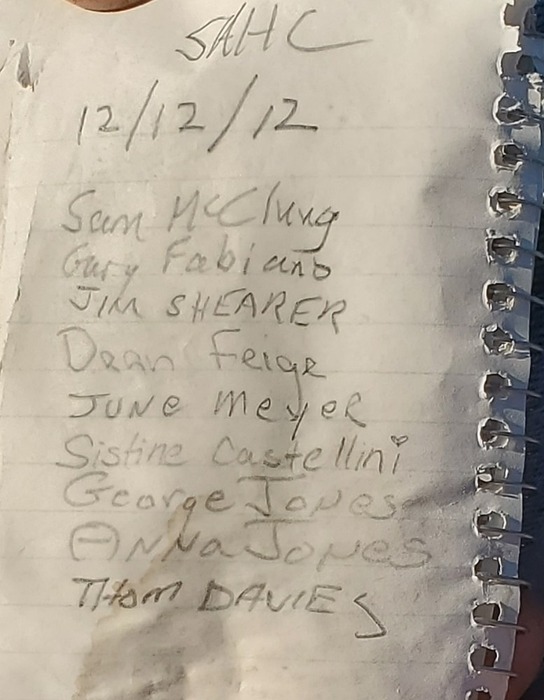 SAHC
12/12/12
Sam McClung
Gary Fabiano
JIM SHEARER
Dean Feige
JUNe meyeR
Sistine Castellini
George Jones
ANNa Jones
THom DAVIES